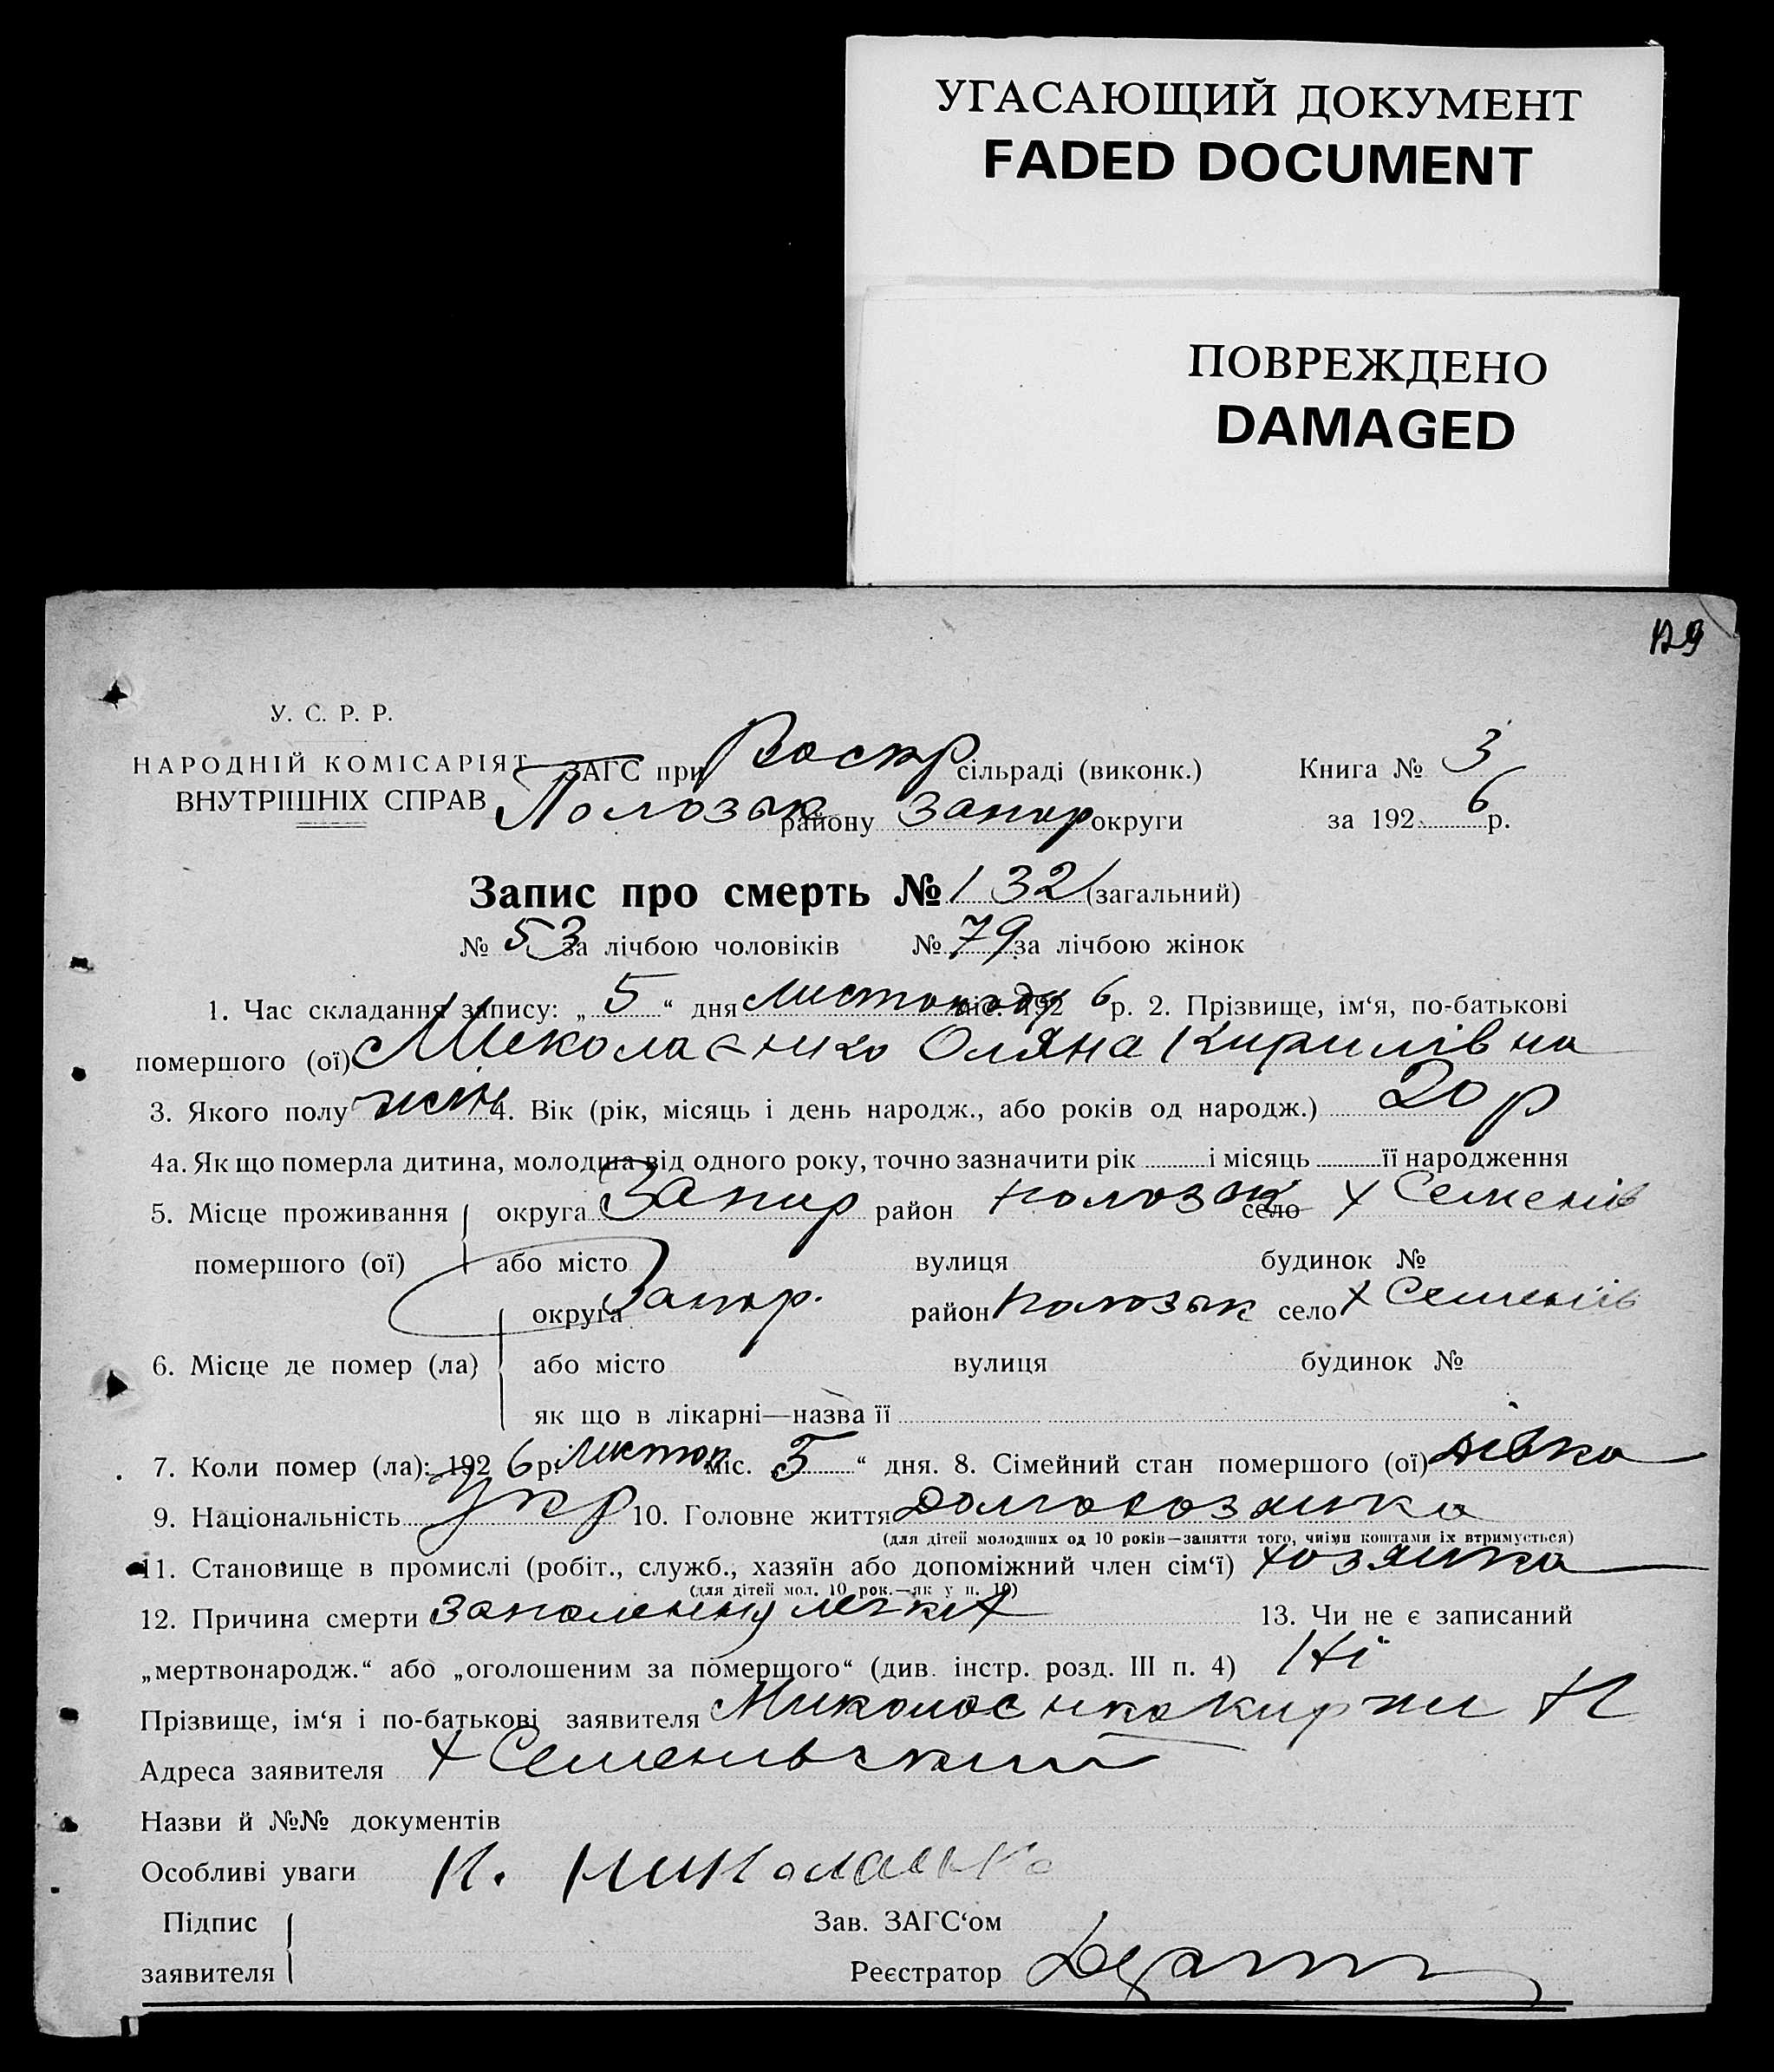 УГАСАЮЩИЙ ДОКУМЕНТ
FADED DOCUMENT
ПОВРЕЖДЕНО
DAMAGED
129
У. С. Р. Р.
НАРОДНІЙ КОМІСАРІЯТ
ВНУТРІШНІХ СПРАВ
ЗАГС при Воскр сільраді (виконк.) Книга № 3
Пологзьк району Запор округи за 1926 р.
Запис про смерть № 132 (загальний)
№ 53 за лічбою чоловіків № 79 за лічбою жінок
1. Час складання запису: „ 5 “ дня листопаду міс. 192 6 р. 2. Прізвище, ім‘я, по-батькові
помершого (ої) Миколаєнко Оляна Кирилівна
3. Якого полу жін 4. Вік (рік, місяць і день народж., або років од народж.) 20 р
4а. Як що померла дитина, молодша від одного року, точно зазначити рік і місяць її народження
5. Місце проживання округа Запор район село х Семенів
помершого (ої) або місто вулиця будинок №
округа Запор. район село х Семенів
6. Місце де помер (ла) або місто вулиця будинок №
як що в лікарні—назва її
7. Коли помер (ла): 192 6 р. Листоп міс. „ 5 “ дня. 8. Сімейний стан помершого (ої) дівка
9. Національність укр 10. Головне життя
(для дітей молодших од 10 років—заняття того, чиїми коштами їх втримується)
11. Становище в промислі (робіт., служб., хазяїн або допоміжний член сім‘ї) хозяйка
(для дітей мол. 10 рок.—як у п. 10)
12. Причина смерти запалення легких 13. Чи не є записаний
„мертвонародж.“ або „оголошеним за померщого“ (див. інстр. розд. III п. 4) Ні
Прізвище, ім‘я і по-батькові заявителя Миколаєнко
Адреса заявителя х Семенівский
Назви й №№ документів
Особливі уваги Н. Николаенко
Підпис Зав. ЗАГС‘ом
заявителя Реєстратор